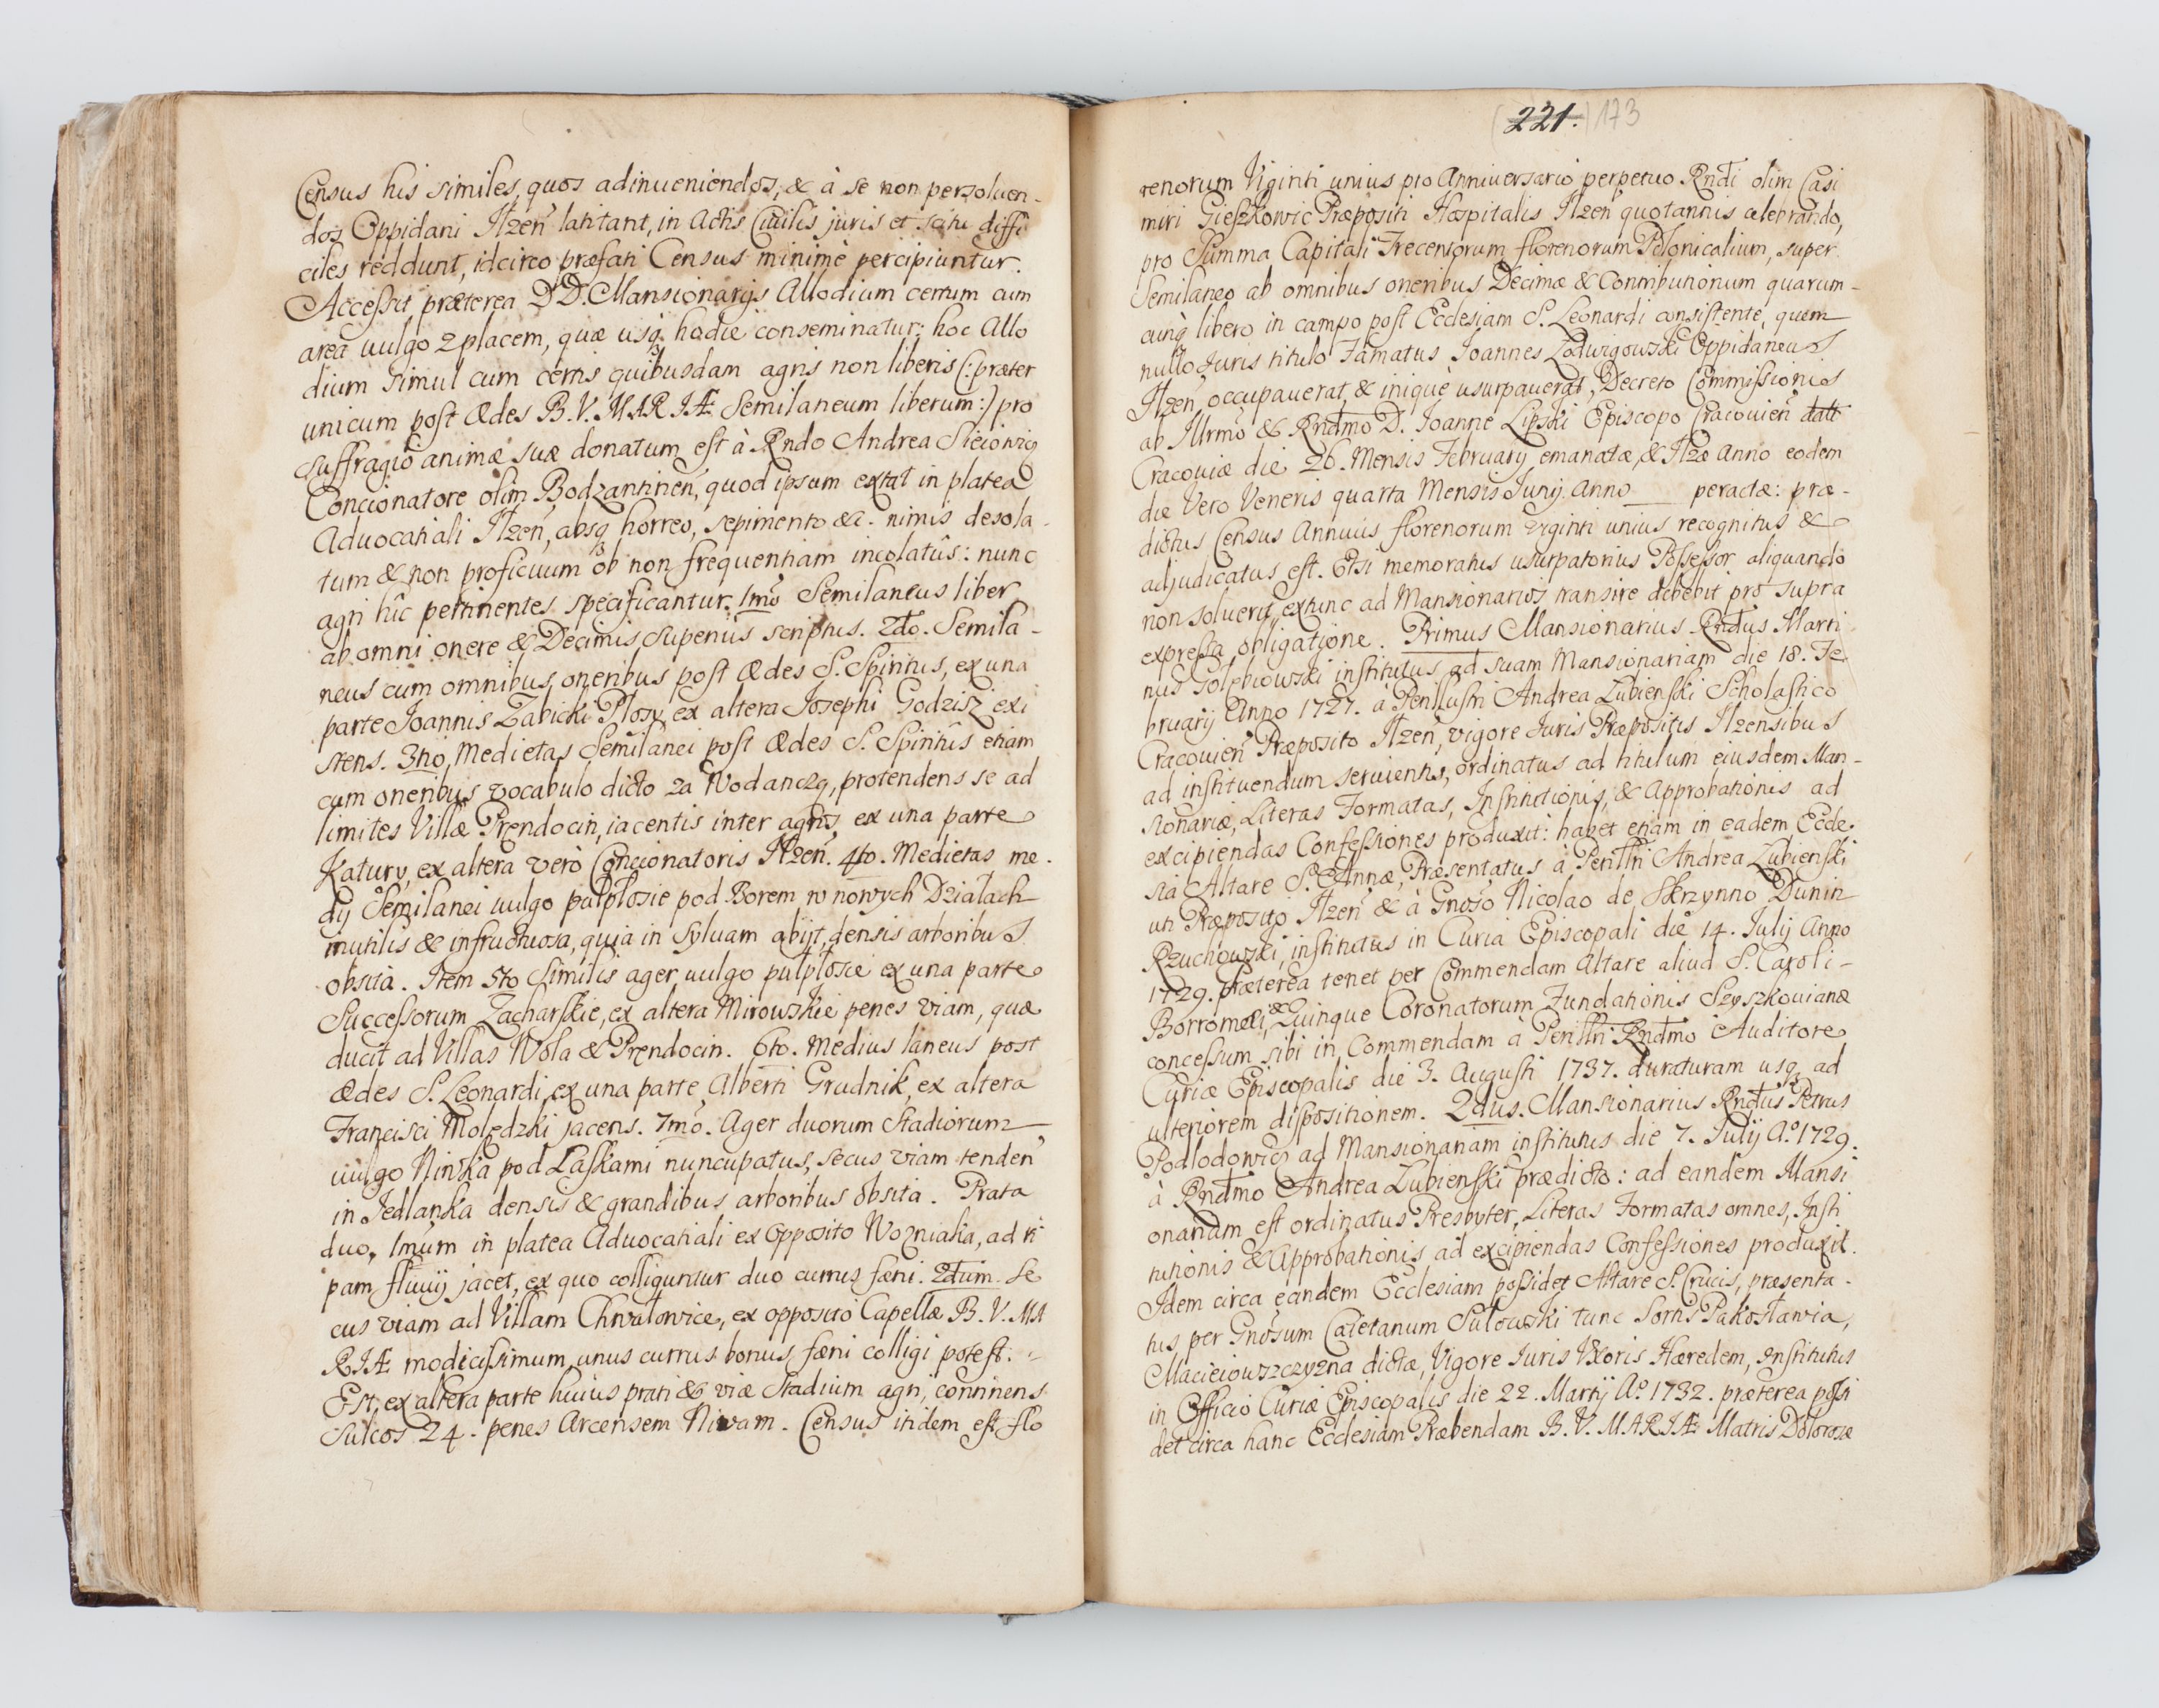 Census his similes, quos adinueniendos, & à se non persoluen-
dos Oppidani Ilzen latitant, in Actis Ciuilis juris et scitu diffi
ciles reddunt, idcirco præfati Census minimè percipiuntur.
Accessit præterea DD. Mansionarijs Allodium certum cum
area uulgo z placem, quæ usq hodie conseminatur; hoc Allo
dium simul cum certis quibusdam agris non liberis (: præter
unicum post Ædes B. V. MARIÆ Semilaneum liberum :) pro
suffragio animæ suæ donatum est à Rndo Andrea Sieiowicz
Concionatore olim Bodzantinen, quod ipsum extat in platea
Aduocatiali Ilzen, absq horreo, sepimento &c. nimis desola-
tum & non proficuum ob non frequentiam incolatûs: nunc
agri hîc pertinentes specificantur. 1mo Semilaneus liber
ab omni onere & Decimis superius scriptus. 2do. Semila-
neus cum omnibus oneribus post Ædes S. Spiritus, ex una
parte Joannis Zabicki Plosy, ex altera Josephi Godzisz exi
stens. 3tio, Medietas Semilanei post Ædes S. Spiritûs etiam
cum oneribus vocabulo dicto za Wodanczą, protendens se ad
limites Villæ Prendocin, iacentis inter agros, ex una parte
Katury, ex altera verò Concionatoris Ilzen. 4to. Medietas me-
dij Semilanei uulgo pułpłosie pod Borem w nowych Działach
inutilis & infructuosa, quia in syluam abijt, densis arboribus
obsita. Item 5to Similis ager uulgo pulpłosie ex una parte
Successorum Zacharskie, ex altera Mirowskie penes viam, quæ
ducit ad Villas Wola & Prendocin. 6to. Medius laneus post
Ædes S. Leonardi, ex una parte Alberti Grudnik, ex altera
Francisci Molędzki jacens. 7mo. Ager duorum Stadiorum
uulgo Niwka pod Laskami nuncupatus, secus viam tenden
in Jedlanka densis & grandibus arboribus obsita. Prata
duo, 1mum in platea Aduocatiali ex opposito Wozniaka, ad ri
pam fluuij jacet, ex quo colliguntur duo currus fæni. 2dum. Se
cus viam ad Villam Chwałowice, ex opposito Capellæ B. V. MA
RIÆ modicissimum, unus currus bonus fæni colligi potest.
Est, ex altera parte huius prati & viæ Stadium agri, continens
Sulcos 24. penes Arcensem Niwam. Census itidem est flo
(221.) 173
renorum Viginti unius pro Anniuersario perpetuo Rndi olim Casi
miri Gieszkowic Præpositi Hospitalis Ilzen quotannis celebrando,
pro Summa Capitali Trecentorum florenorum Polonicalium, super
Semilaneo ab omnibus oneribus Decimæ & Contributionum quarum-
cunq libero in campo post Ecclesiam S. Leonardi consistente, quem
nullo Juris titulo Famatus Joannes Zodwigowski Oppidaneus
Ilzen occupauerat, & iniquè usurpauerat, Decreto Commissionis
ab Illrmo & Rndmo D. Joanne Lipski Episcopo Cracouien datt
Cracouiæ die 26. Mensis February emanatæ, & Ilzæ Anno eodem
die Vero Veneris quarta Mensis Junij Anno ___ peractæ: præ-
dictus Census Annuus florenorum viginti unius recognitus &
adjudicatus est. Etsi memoratus usurpatorius Possessor aliquando
non soluerit, extunc ad Mansionarios transire debebit pro supra
expressa obligatione. Primus Mansionarius Rndus Marti
nus Gołębiowski institutus ad suam Mansionariam die 18. Fe
bruarij Anno 1727. à Perillustri Andrea Zubienski Scholastico
Cracouien Præposito Ilzen, vigore Juris Præpositis Ilzensibus
ad instituendum seruientis, ordinatus ad titulum eiusdem Man-
sionariæ, Literas Formatas, Institutionis, & Approbationis ad
excipiendas Confessiones produxit: habet etiam in eadem Eccle-
sia Altare S. Annæ, Præsentatus à Perillri Andrea Zubienski
uti Præposito Ilzen & à Gnoso Nicolao de Skrzynno Dunin
Rzuchowski, institutus in Curia Episcopali die 14. Julij Anno
1729. Præterea tenet per Commendam Altare aliud S. Caroli-
Borromæi, & Quinque Coronatorum Fundationis Szyszkouianæ
concessum sibi in Commendam à Perillri Rndmo Auditore
Curiæ Episcopalis die 3. Augusti 1737. duraturam usq ad
ulteriorem dispositionem. 2dus. Mansionarius Rndus Petrus
Podlodowicz ad Mansionariam institutus die 7. Julij Ao. 1729.
à Rndmo Andrea Zubienski prædicto: ad eandem Mansi
onariam est ordinatus Presbyter, Literas Formatas omnes, Insti
tutionis & Approbationis ad excipiendas Confessiones produxit.
Idem circa eandem Ecclesiam possidet Altare S. Crucis, præsenta-
tus per Gnosum Caietanum Sulowski tunc Sortis Pakosławia,
Macieiowszczyzna dictæ, Vigore Juris Uxoris Hæredem, institutus
in Officio Curiæ Episcopalis die 22. Martij Ao. 1732. præterea possi
det circa hanc Ecclesiam Præbendam B. V. MARIÆ Matris Dolorosæ